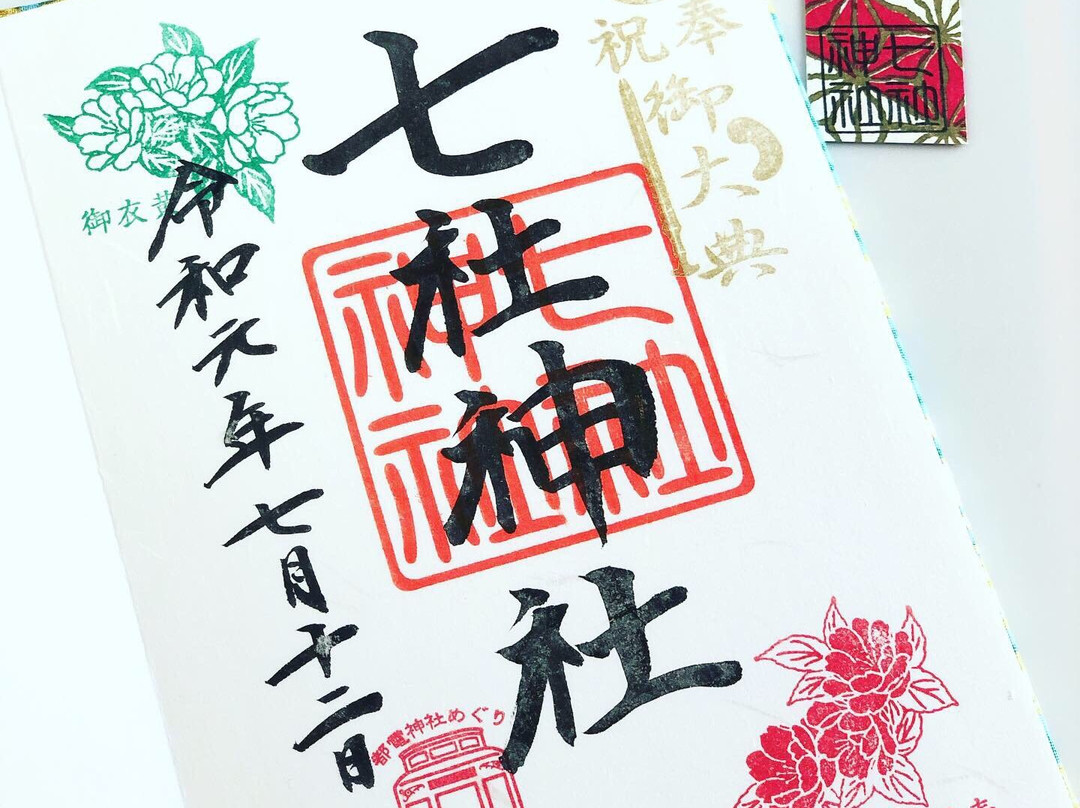 奉祝
御大典
七社神社
七社神社
令和元年七月十二日
御衣黄
都電神社めぐり
七社神社